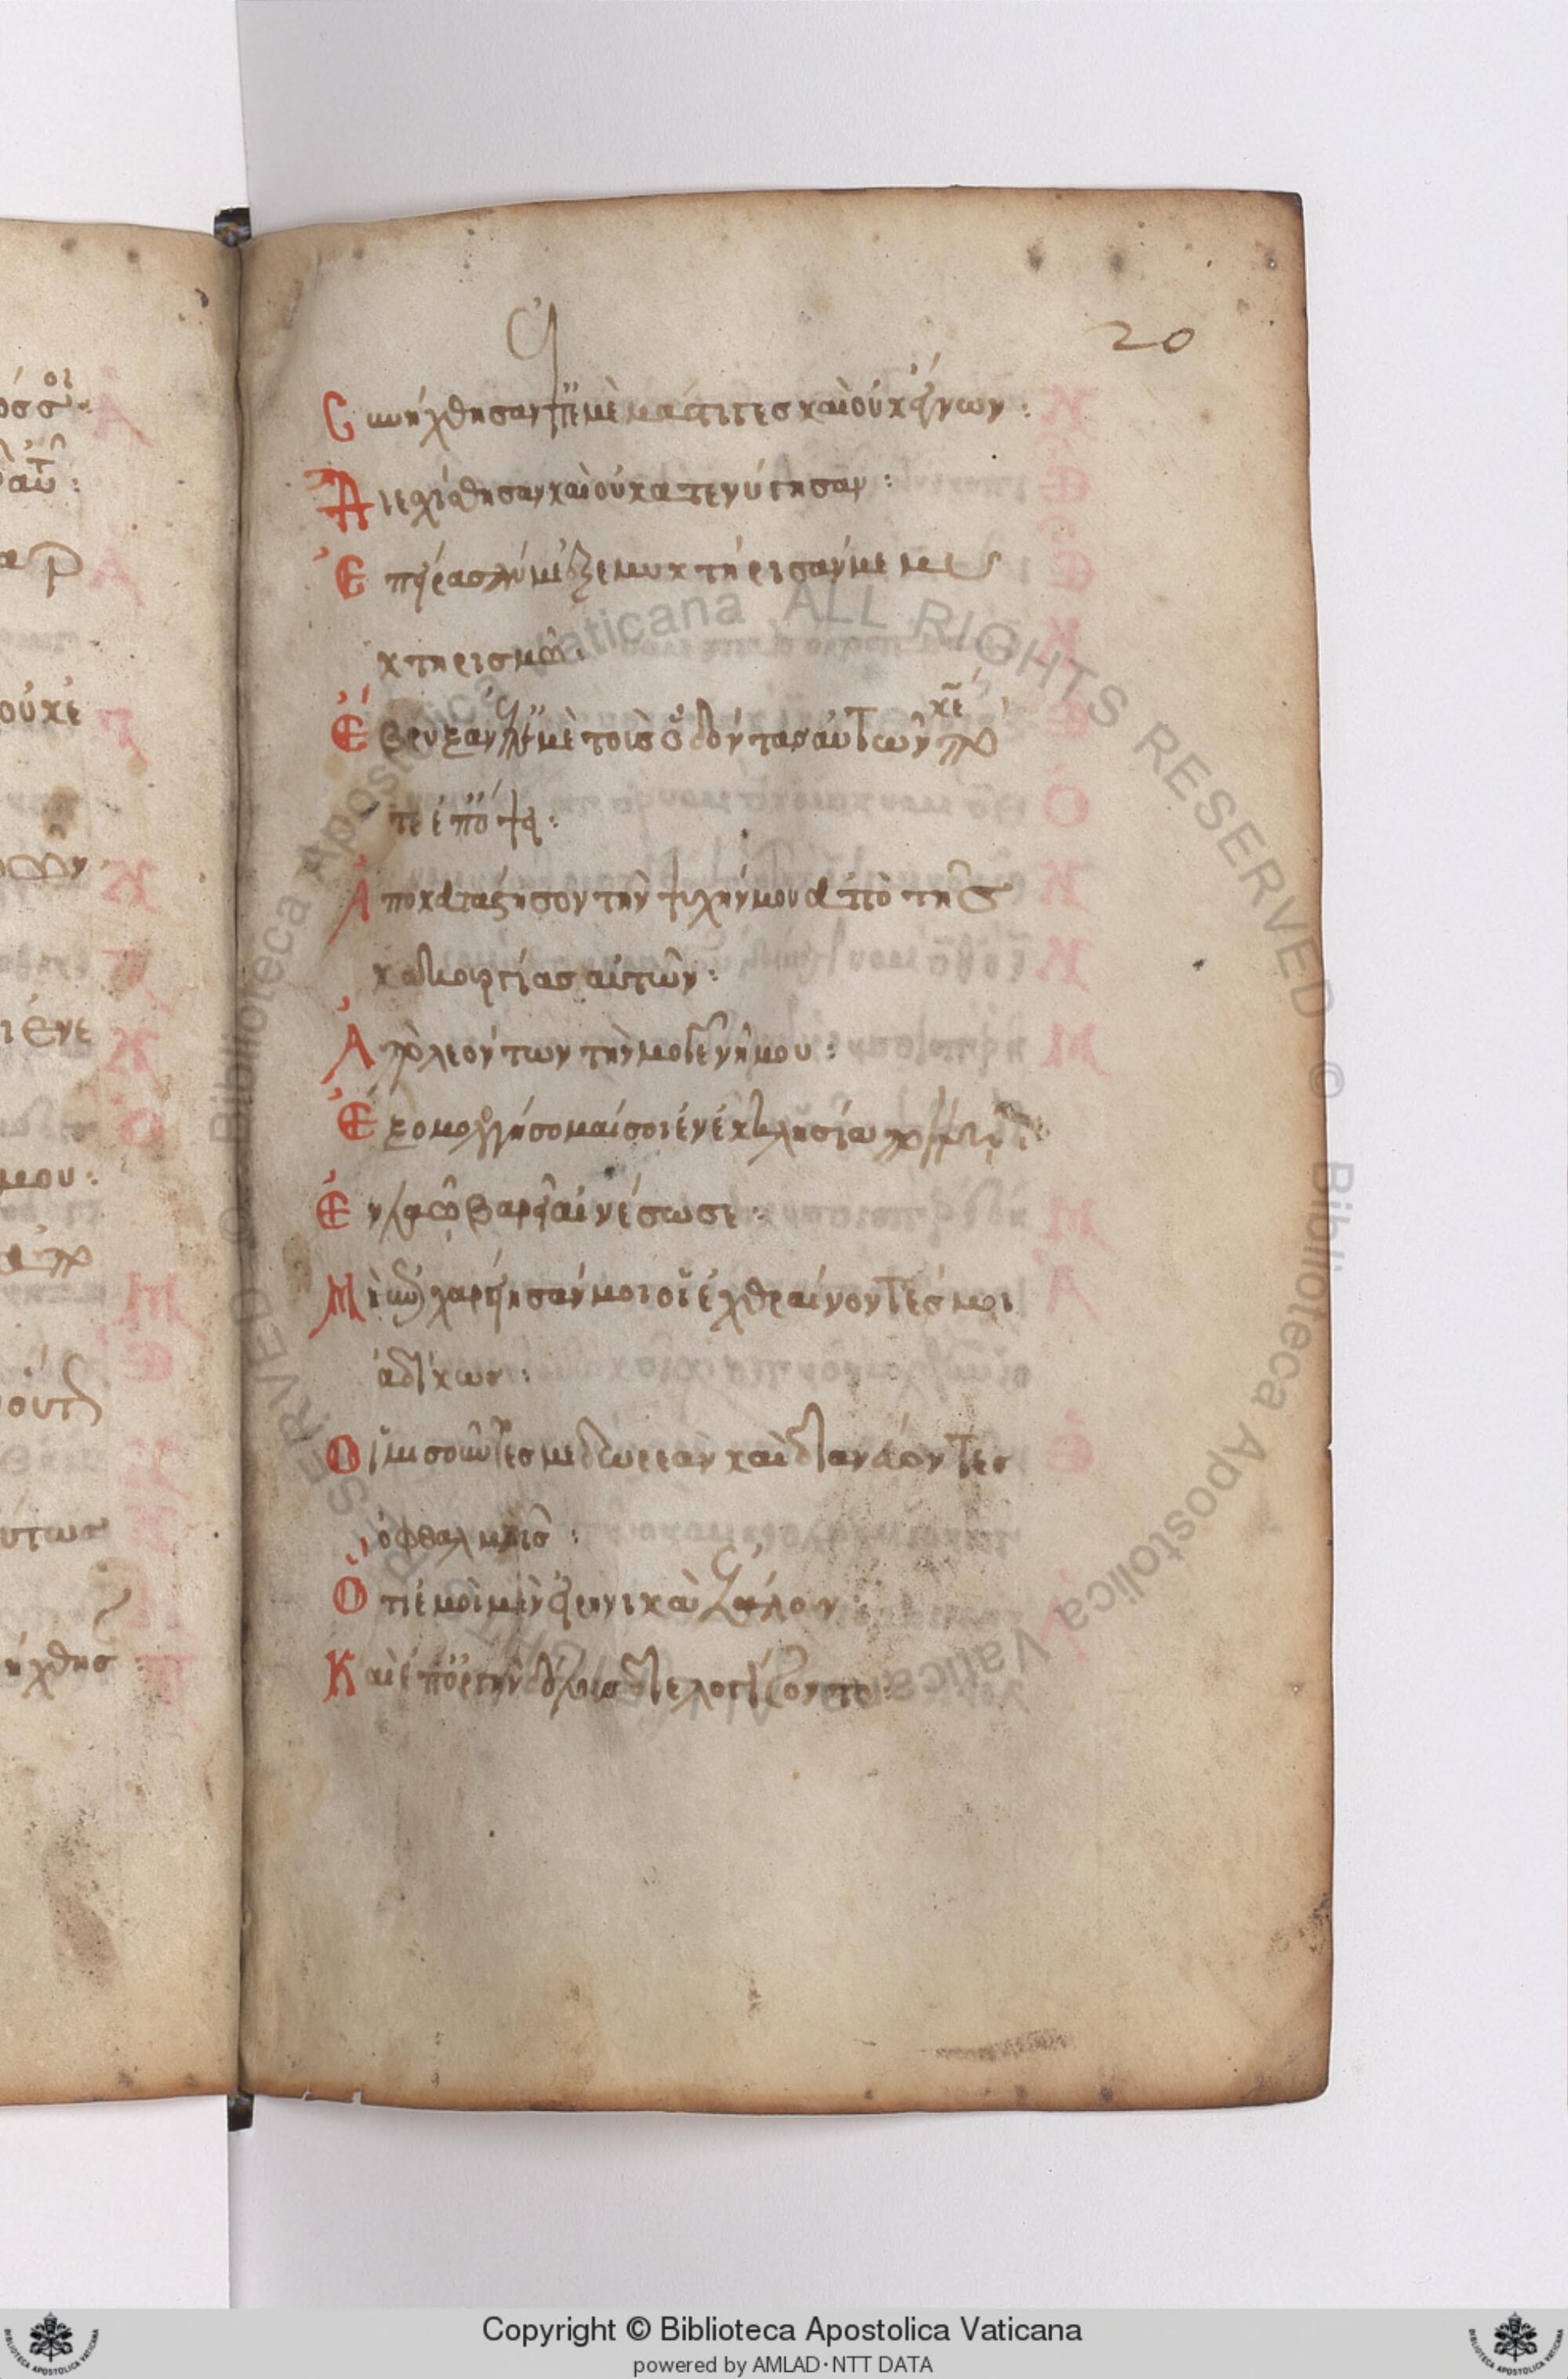 20
Συνήχθησαν ἐπ ἐμὲ μάστιγες καὶ οὐκ ἔγνων:
Διεσχίσθησαν καὶ οὐ κατενύγησαν:
Ἐπείρασάν με ἐξεμυκτήρισάν με μυ
κτηρισμῶ:
Ἔβρυξαν ἐπ ἐμὲ τοὺς ὀδόντας αὐτῶν κε
πότε ἐπόψει:
Ἀποκατάστησον τὴν ψυχήν μου ἀπὸ τῆς
κακουργίας αὐτῶν:
Ἀπὸ λεόντων τὴν μονογενῆ μου:
Ἐξομολογήσομαί σοι ἐν ἐκκλησία πολλῆ
Ἐν λαῶ βαρεῖ αἰνέσω σε:
Μὴ ἐπιχαρείησάν μοι οἱ ἐχθραίνοντές μοι
ἀδίκως:
Οἱ μισοῦντές με δωρεὰν καὶ διανεύοντες
ὀφθαλμοῖς:
Ὅτι ἐμοὶ μὲν εἰρηνικὰ ἐλάλουν:
Καὶ ἐπ ὀργὴν δόλους διελογίζοντο:
Copyright © Biblioteca Apostolica Vaticana
powered by AMLAD·NTT DATA